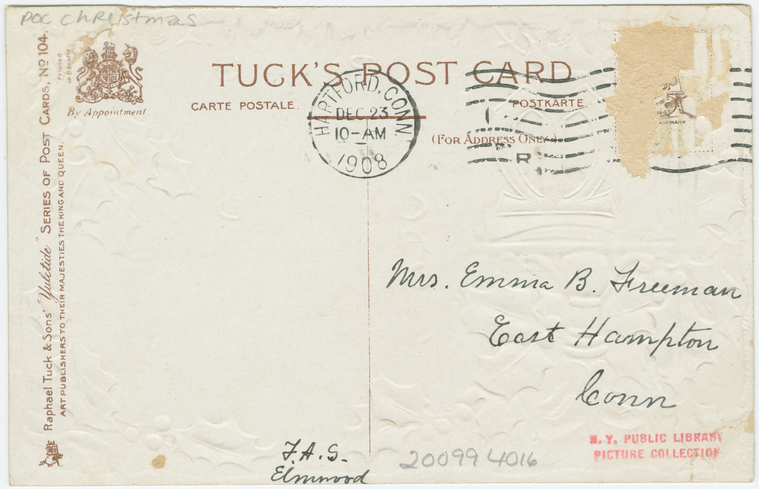 POC Christmas
TUCK'S POST CARD
CARTE POSTALE.
POSTKARTE.
(FOR ADDRESS ONLY.)
By Appointment
HARTFORD, CONN
DEC 23
10-AM
1908
R
Raphael Tuck & Sons' "Yuletide" Series of Post Cards, No 104.
ART PUBLISHERS TO THEIR MAJESTIES THE KING AND QUEEN.
Mrs. Emma B. Freeman
East Hampton
Conn
F.A.S.
Elmwood
200994016
N.Y. PUBLIC LIBRARY
PICTURE COLLECTION